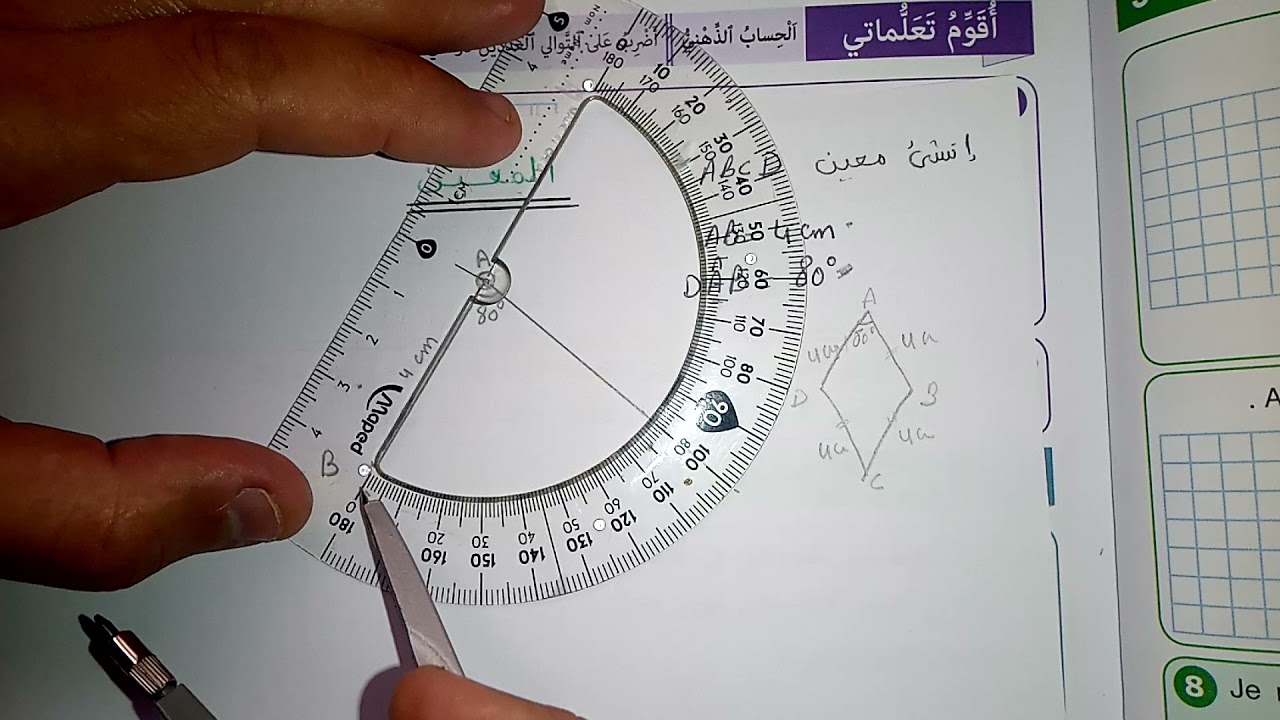 أُقَوِّمُ تَعَلُّماتي
اَلْحِسابُ الذِّهْنِيُّ
أَضْرِبُ عَلى التَّوالي
إنشئ معين ABCD
AB 4 cm
DAB 80°
A
80°
4 cm
B
A
4cm
4cm
D
B
4cm
4cm
C
Maped
0
1
2
3
4
5
0 10 20 30 40 50 60 70 80 90 100 110 120 130 140 150 160 180
180 170 160 150 140 130 120 110 100 80 70 60 50 40 30 20 0
. A
8 Je